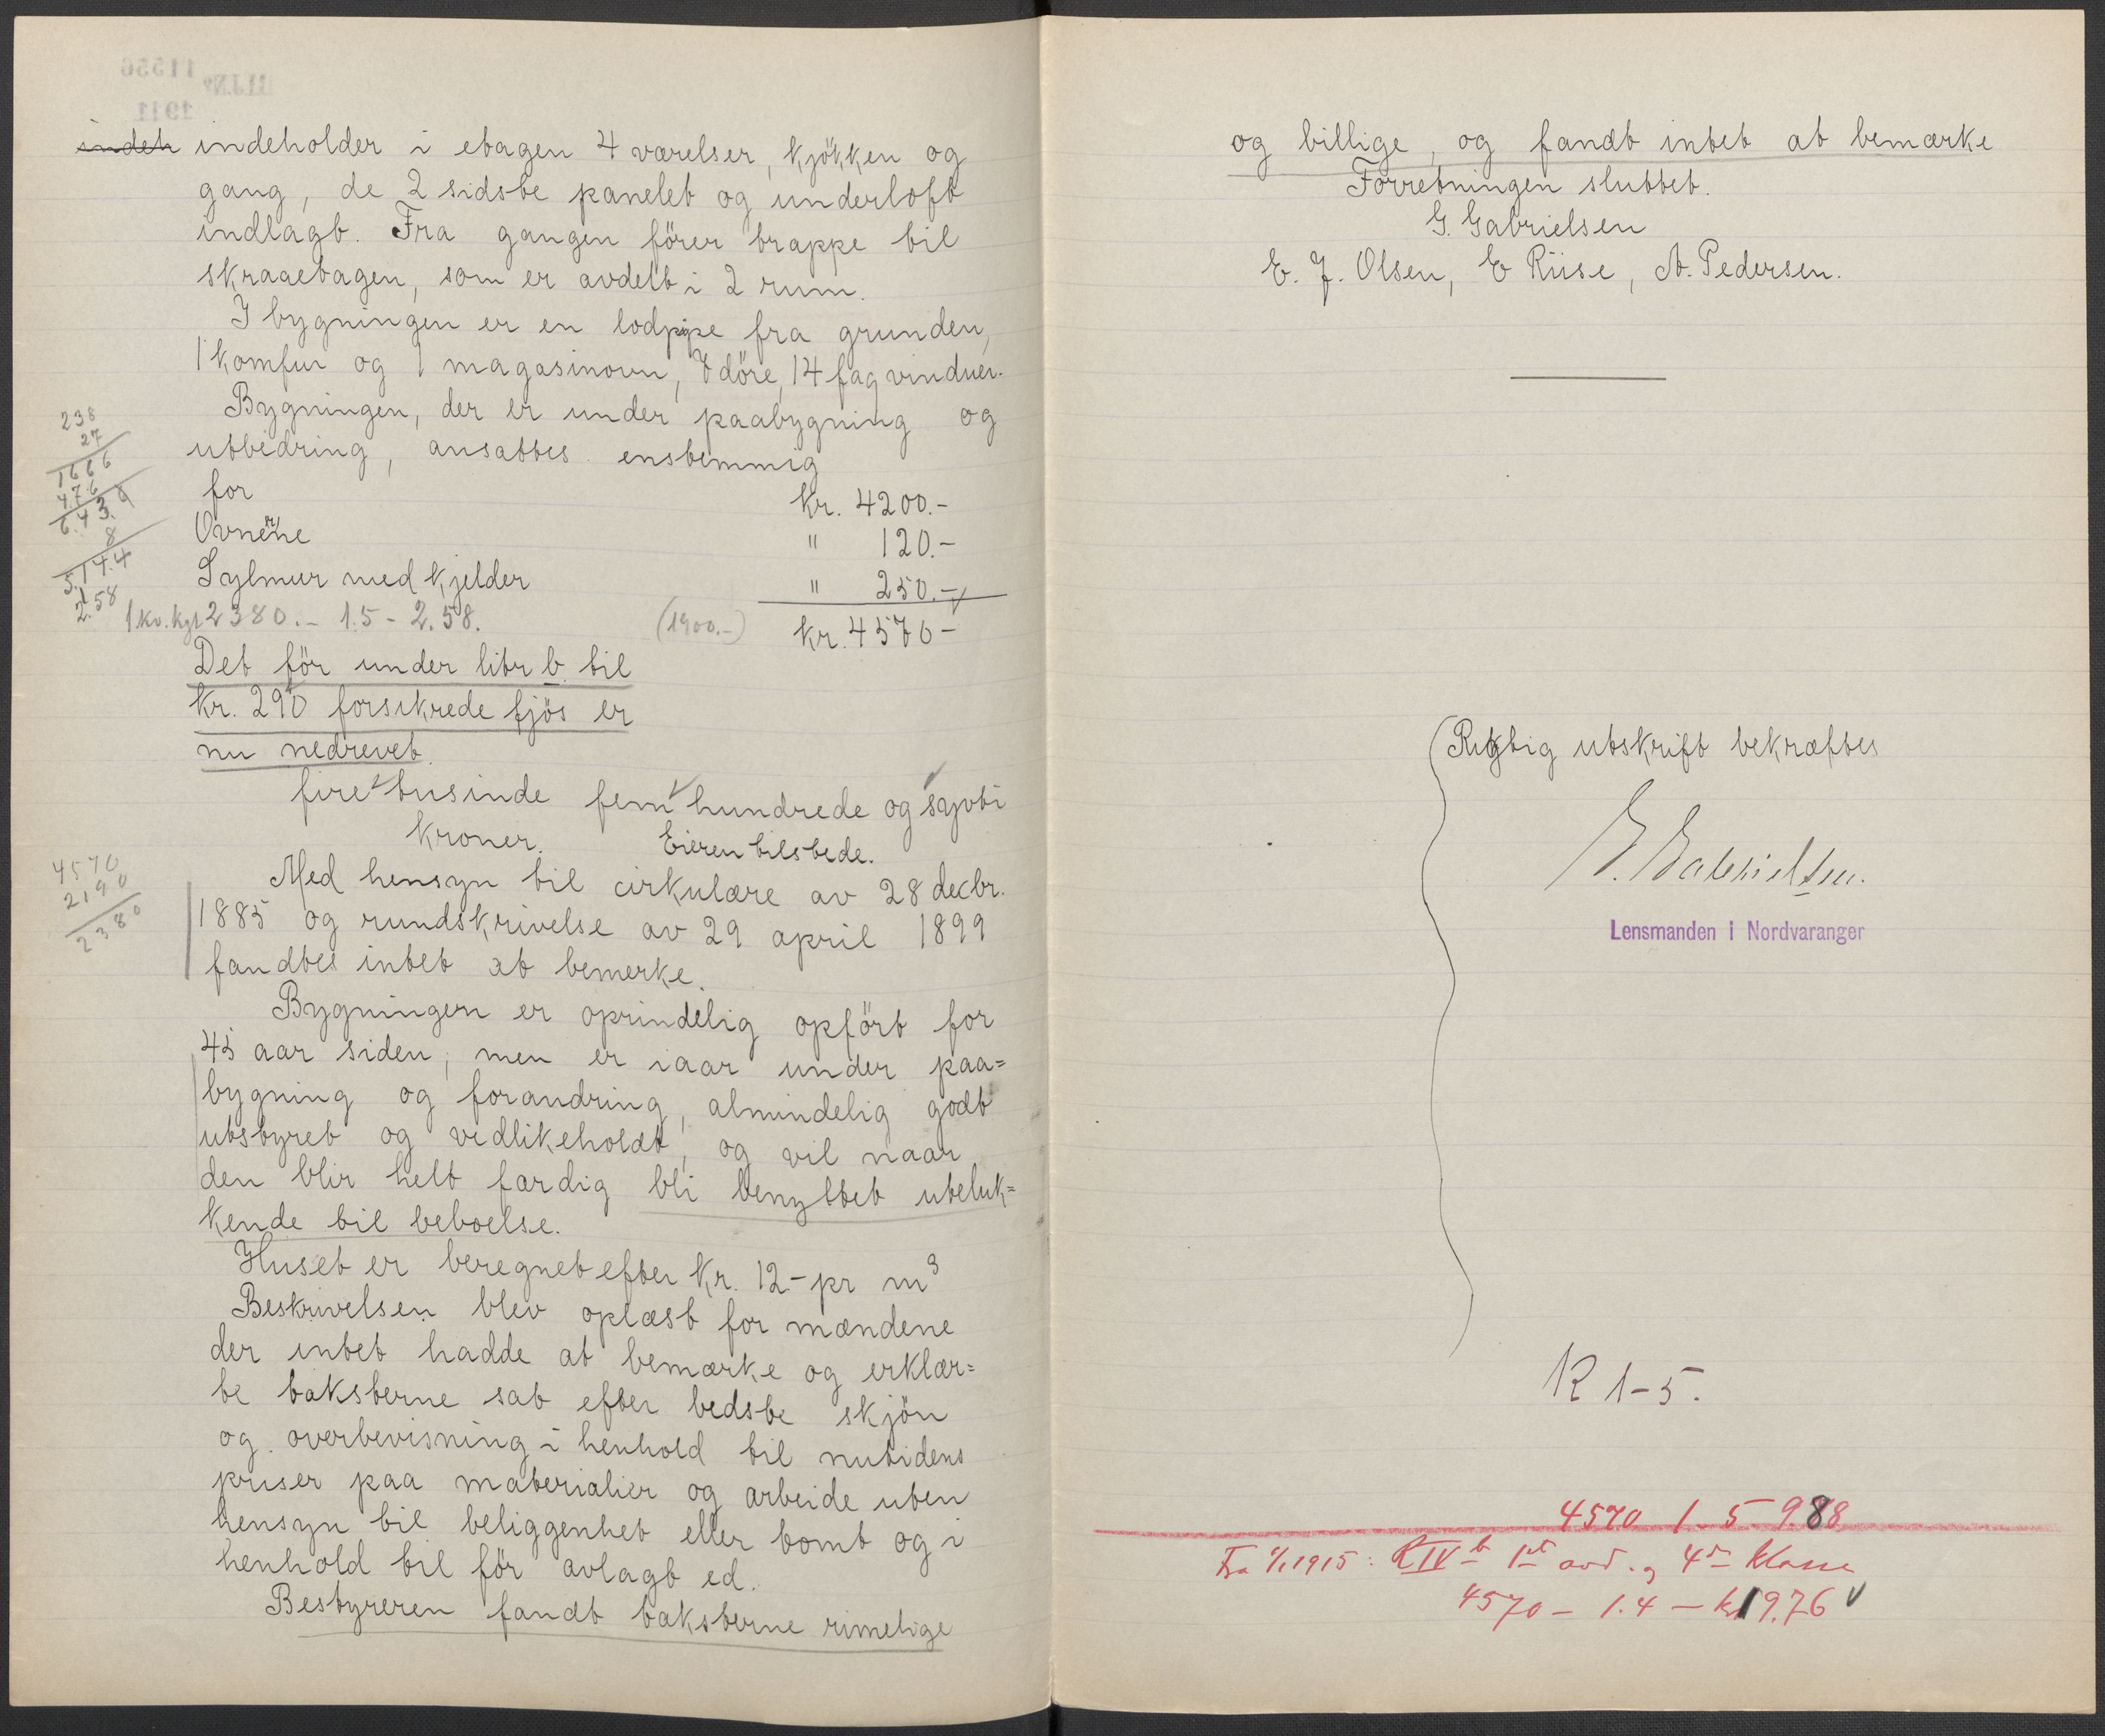 indeh indeholder i etagen 4 værelser, kjökken og
gang, de 2 sidste panelet og underloft
indlagt. Fra gangen förer trappe til
skraaetagen, som er avdelt i 2 rum.
I bygningen er en lodpipe fra grunden,
1 komfur og 1 magasinovn, 7 döre, 14 fag vinduer.
Bygningen, der er under paabygning og
utbedring, ansattes enstemmig
for Kr. 4200.-
Ovnene " 120.-
Sylmur med kjelder " 250.-
1 kv. kgl 2380.- 1.5 - 2.58. (1900.-) Kr. 4570-
Det för under litr b. til
Kr. 290 forsikrede fjös er
nu nedrevet.
fire tusinde fem hundrede og sytti
kroner. Eieren tilstede.
Med hensyn til cirkulære av 28 decbr.
1885 og rundskrivelse av 29 april 1899
fandtes intet at bemerke.
Bygningen er oprindelig opfört for
45 aar siden, men er iaar under paa=
bygning og forandring, almindelig godt
utstyret og vedlikeholdt, og vil naar
den blir helt færdig bli benyttet uteluk=
kende til beboelse.
Huset er beregnet efter Kr. 12.- pr m³
Beskrivelsen blev oplæst for mændene
der intet hadde at bemærke og erklær=
te taksterne sat efter bedste skjön
og overbevisning i henhold til nutidens
priser paa materialier og arbeide uten
hensyn til beliggenhet eller tomt og i
henhold til för avlagt ed.
Bestyreren fandt taksterne rimelige
238
27
1666
476
6.43.8
8
5.14.4
2.58
4570
2190
2380
11556
BIJ.No
1911
og billige, og fandt intet at bemærke
Forretningen sluttet.
G. Gabrielsen
E. J. Olsen, E Riise, A. Pedersen.
Rigtig utskrift bekræftes
G. Gabrielsen.
Lensmanden i Nordvaranger
R 1-5.
4570 1-5 9.88
Fra 1/1 1915: R IV b 1ste avd. og 4de Klasse
4570 - 1.4 - kr 19.76